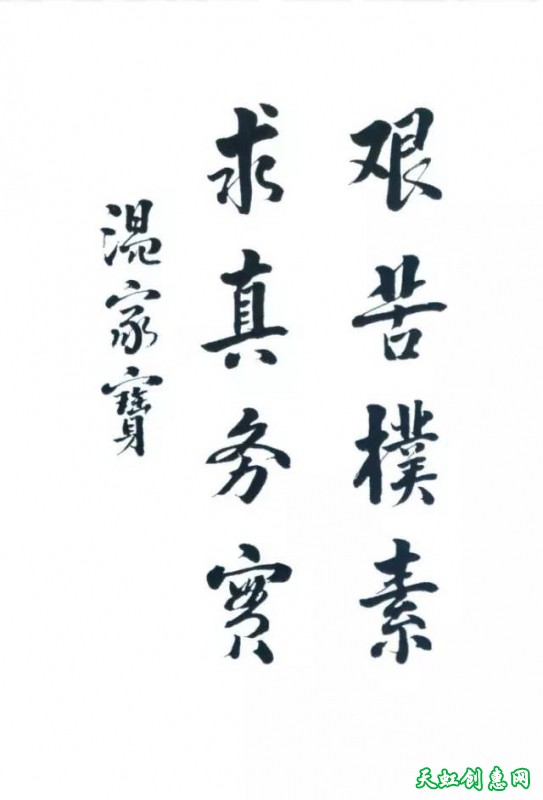 艰苦樸素
求真务實
温家寶
天虹创惠网